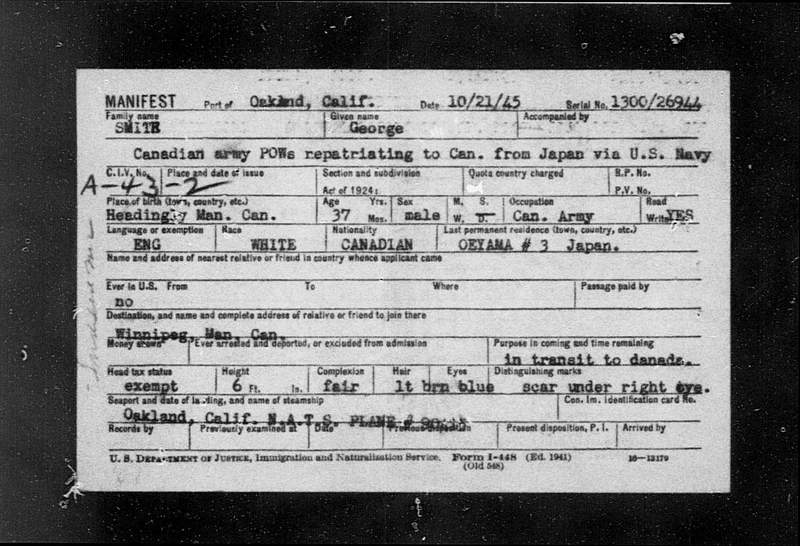 MANIFEST Port of Oakland, Calif. Date 10/21/45 Serial No. 1300/26944
Family name Given name Accompanied by
SMITH George
Canadian army POWs repatriating to Can. from Japan via U.S. Navy
C.I.V. No. Place and date of issue Section and subdivision Quota country charged R.P. No.
A-43-2 Act of 1924: P.V. No.
Place of birth (town, country, etc.) Age Yrs. Sex M. S. Occupation Read
Headingly Man. Can. 37 Mos. male W. D. Can. Army Write YES
Language or exemption Race Nationality Last permanent residence (town, country, etc.)
ENG WHITE CANADIAN OEYAMA # 3 Japan.
Name and address of nearest relative or friend in country whence applicant came
Ever in U.S. From To Where Passage paid by
no
Destination, and name and complete address of relative or friend to join there
Winnipeg, Man. Can.
Money shown Ever arrested and deported, or excluded from admission Purpose in coming and time remaining
in transit to danada.
Head tax status Height Complexion Hair Eyes Distinguishing marks
exempt 6 Ft. In. fair lt brn blue scar under right eye.
Seaport and date of landing, and name of steamship Can. Im. Identification card No.
Oakland, Calif. N.A.T.S. PLANE #
Records by Previously examined at Date Previous disposition Present disposition, P. I. Arrived by
U. S. DEPARTMENT OF JUSTICE, Immigration and Naturalization Service. Form I-448 (Ed. 1941) 16—13179
(Old 548)